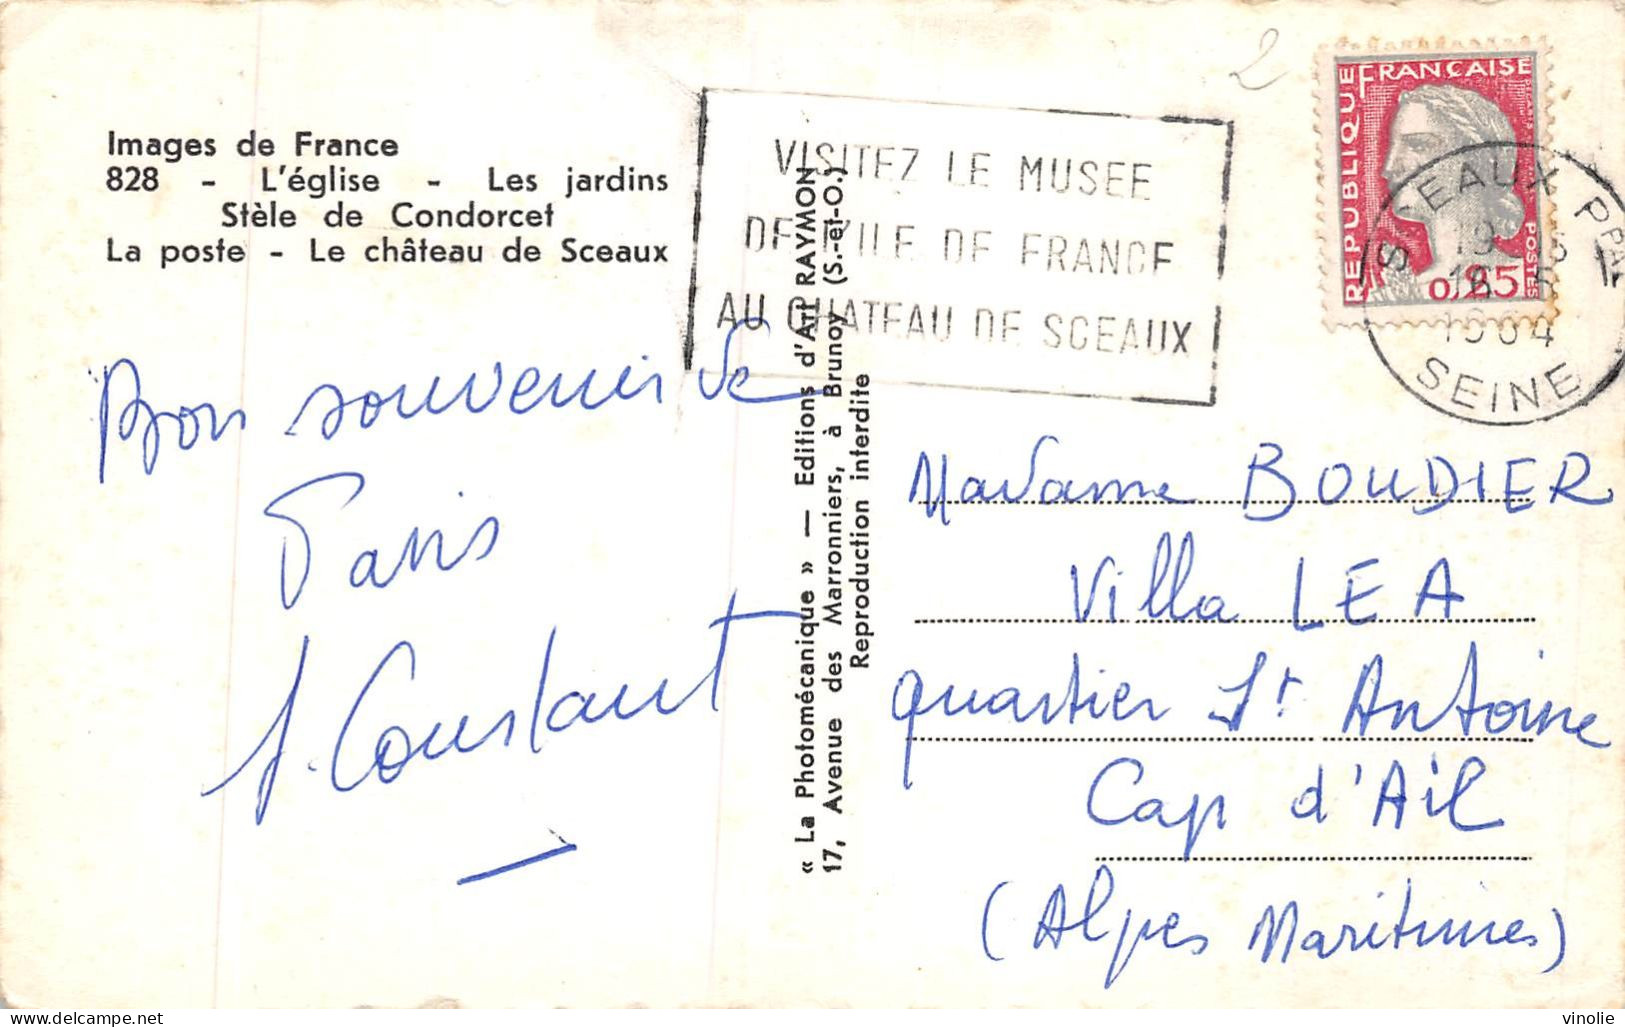 Images de France
828 - L'église - Les jardins
Stèle de Condorcet
La poste - Le château de Sceaux
2
VISITEZ LE MUSEE
DE L'ILE DE FRANCE
AU CHATEAU DE SCEAUX
REPUBLIQUE FRANÇAISE
POSTES
0,25
SCEAUX PPAL
1964
SEINE
Bon souvenir de
Paris
J. Constant
« La Photomécanique » — Editions d'Art RAYMON
17, Avenue des Marronniers, à Brunoy (S.-et-O.)
Reproduction interdite
Madame BOUDIER
Villa LEA
quartier St Antoine
Cap d'Ail
(Alpes Maritimes)
delcampe.net
vinolie